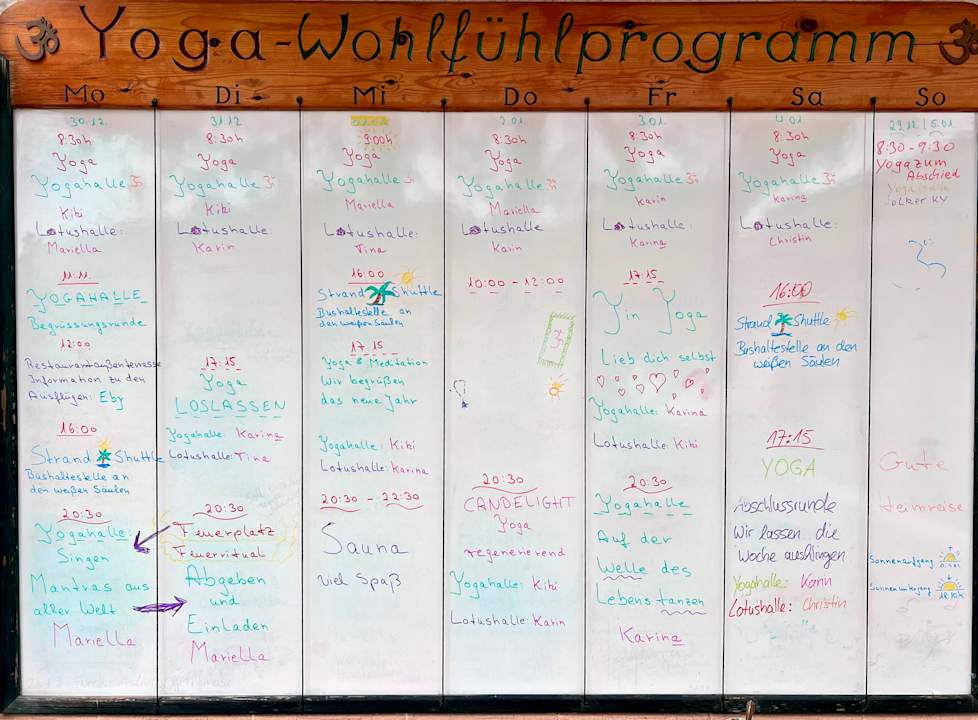 Yoga-Wohlfühlprogramm
Mo
30.12.
8:30h
Yoga
Yogahalle ॐ
Kiki
Lotushalle:
Mariella
11:11
YOGAHALLE
Begrüssungsrunde
12:00
Restaurantaußenterrasse
Information zu den
Ausflügen: Eby
16:00
Strand Shuttle
Bushaltestelle an
den weißen Säulen
20:30
Yogahalle:
Singen
Mantras aus
aller Welt
Mariella
Di
31.12.
8:30h
Yoga
Yogahalle ॐ
Kiki
Lotushalle:
Karin
17:15
Yoga
LOSLASSEN
Yogahalle: Karina
Lotushalle: Tina
20:30
Feuerplatz
Feuerritual
Abgeben
und
Einladen
Mariella
Mi
01.01.
9:00h
Yoga
Yogahalle
Mariella
Lotushalle:
Tina
16:00
Strand Shuttle
Bushaltestelle an
den weißen Säulen
17:15
Yoga & Meditation
Wir begrüßen
das neue Jahr
Yogahalle: Kiki
Lotushalle: Karina
20:30 - 22:30
Sauna
viel Spaß
Do
2.01.
8:30h
Yoga
Yogahalle ॐ
Mariella
Lotushalle
Karin
10:00 - 12:00
ॐ
20:30
CANDELIGHT
Yoga
regenerierend
Yogahalle: Kiki
Lotushalle: Karin
Fr
3.01.
8:30h
Yoga
Yogahalle ॐ
Karin
Lotushalle:
Karina
17:15
Yin Yoga
Lieb dich selbst
Yogahalle: Karina
Lotushalle: Kiki
20:30
Yogahalle
Auf der
Welle des
Lebens tanzen
Karina
Sa
4.01
8:30h
Yoga
Yogahalle ॐ
Karina
Lotushalle:
Christin
16:00
Strand Shuttle
Bushaltestelle an den
weißen Säulen
17:15
YOGA
Abschlussrunde
Wir lassen die
Woche ausklingen
Yogahalle: Karin
Lotushalle: Christin
So
29.12. | 5.01
8:30-9:30
Yoga zum
Abschied
Yogahalle
Gute
Heimreise
Sonnenaufgang
Sonnenuntergang